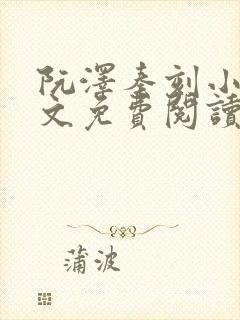 阮澤秦刻小
文免費閱讀
蒲波